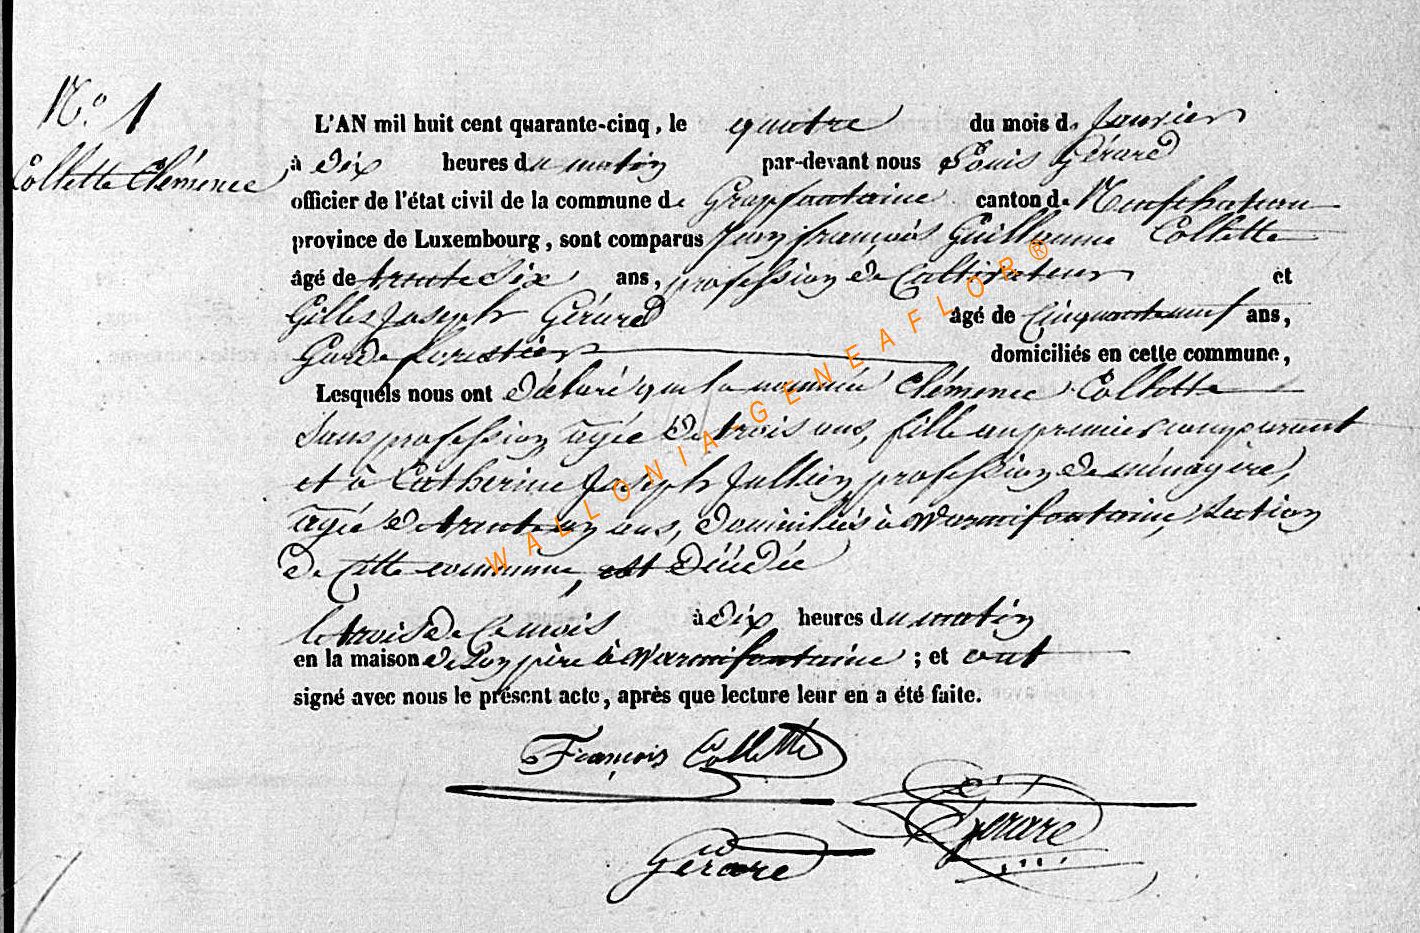 N.o 1
Collette Clémence
L'AN mil huit cent quarante-cinq, le quatre du mois de Janvier
à Dix heures du matin par-devant nous Louis Gérard
officier de l'état civil de la commune de Grapfontaine canton de Neufchateau
province de Luxembourg, sont comparus Jean françois Guillaume Collette
âgé de trente Six ans, profession de Cultivateur et
Gilles Joseph Gérard âgé de Cinquante neuf ans,
Garde forestier domiciliés en cette commune,
Lesquels nous ont Déclaré que la nommée Clémence Collette
Sans profession agée De trois ans, fille au premier comparant
et à Catherine Joseph Jullien profession de ménagère,
agée de ans, Domiciliés à Warmifontaine, Section
De Cette commune, est Décédée
le trois De Ce mois à Dix heures du matin
en la maison de Son père à Warmifontaine ; et ont
signé avec nous le présent acte, après que lecture leur en a été faite.
François Collette
Gérard
Gérard
WALLONIA-GENEAFLOR®